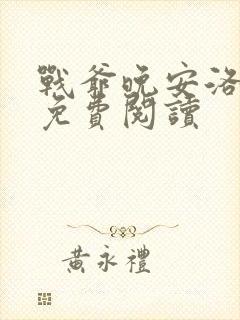 戰爺晚安洛
免費閱讀
黃永禮